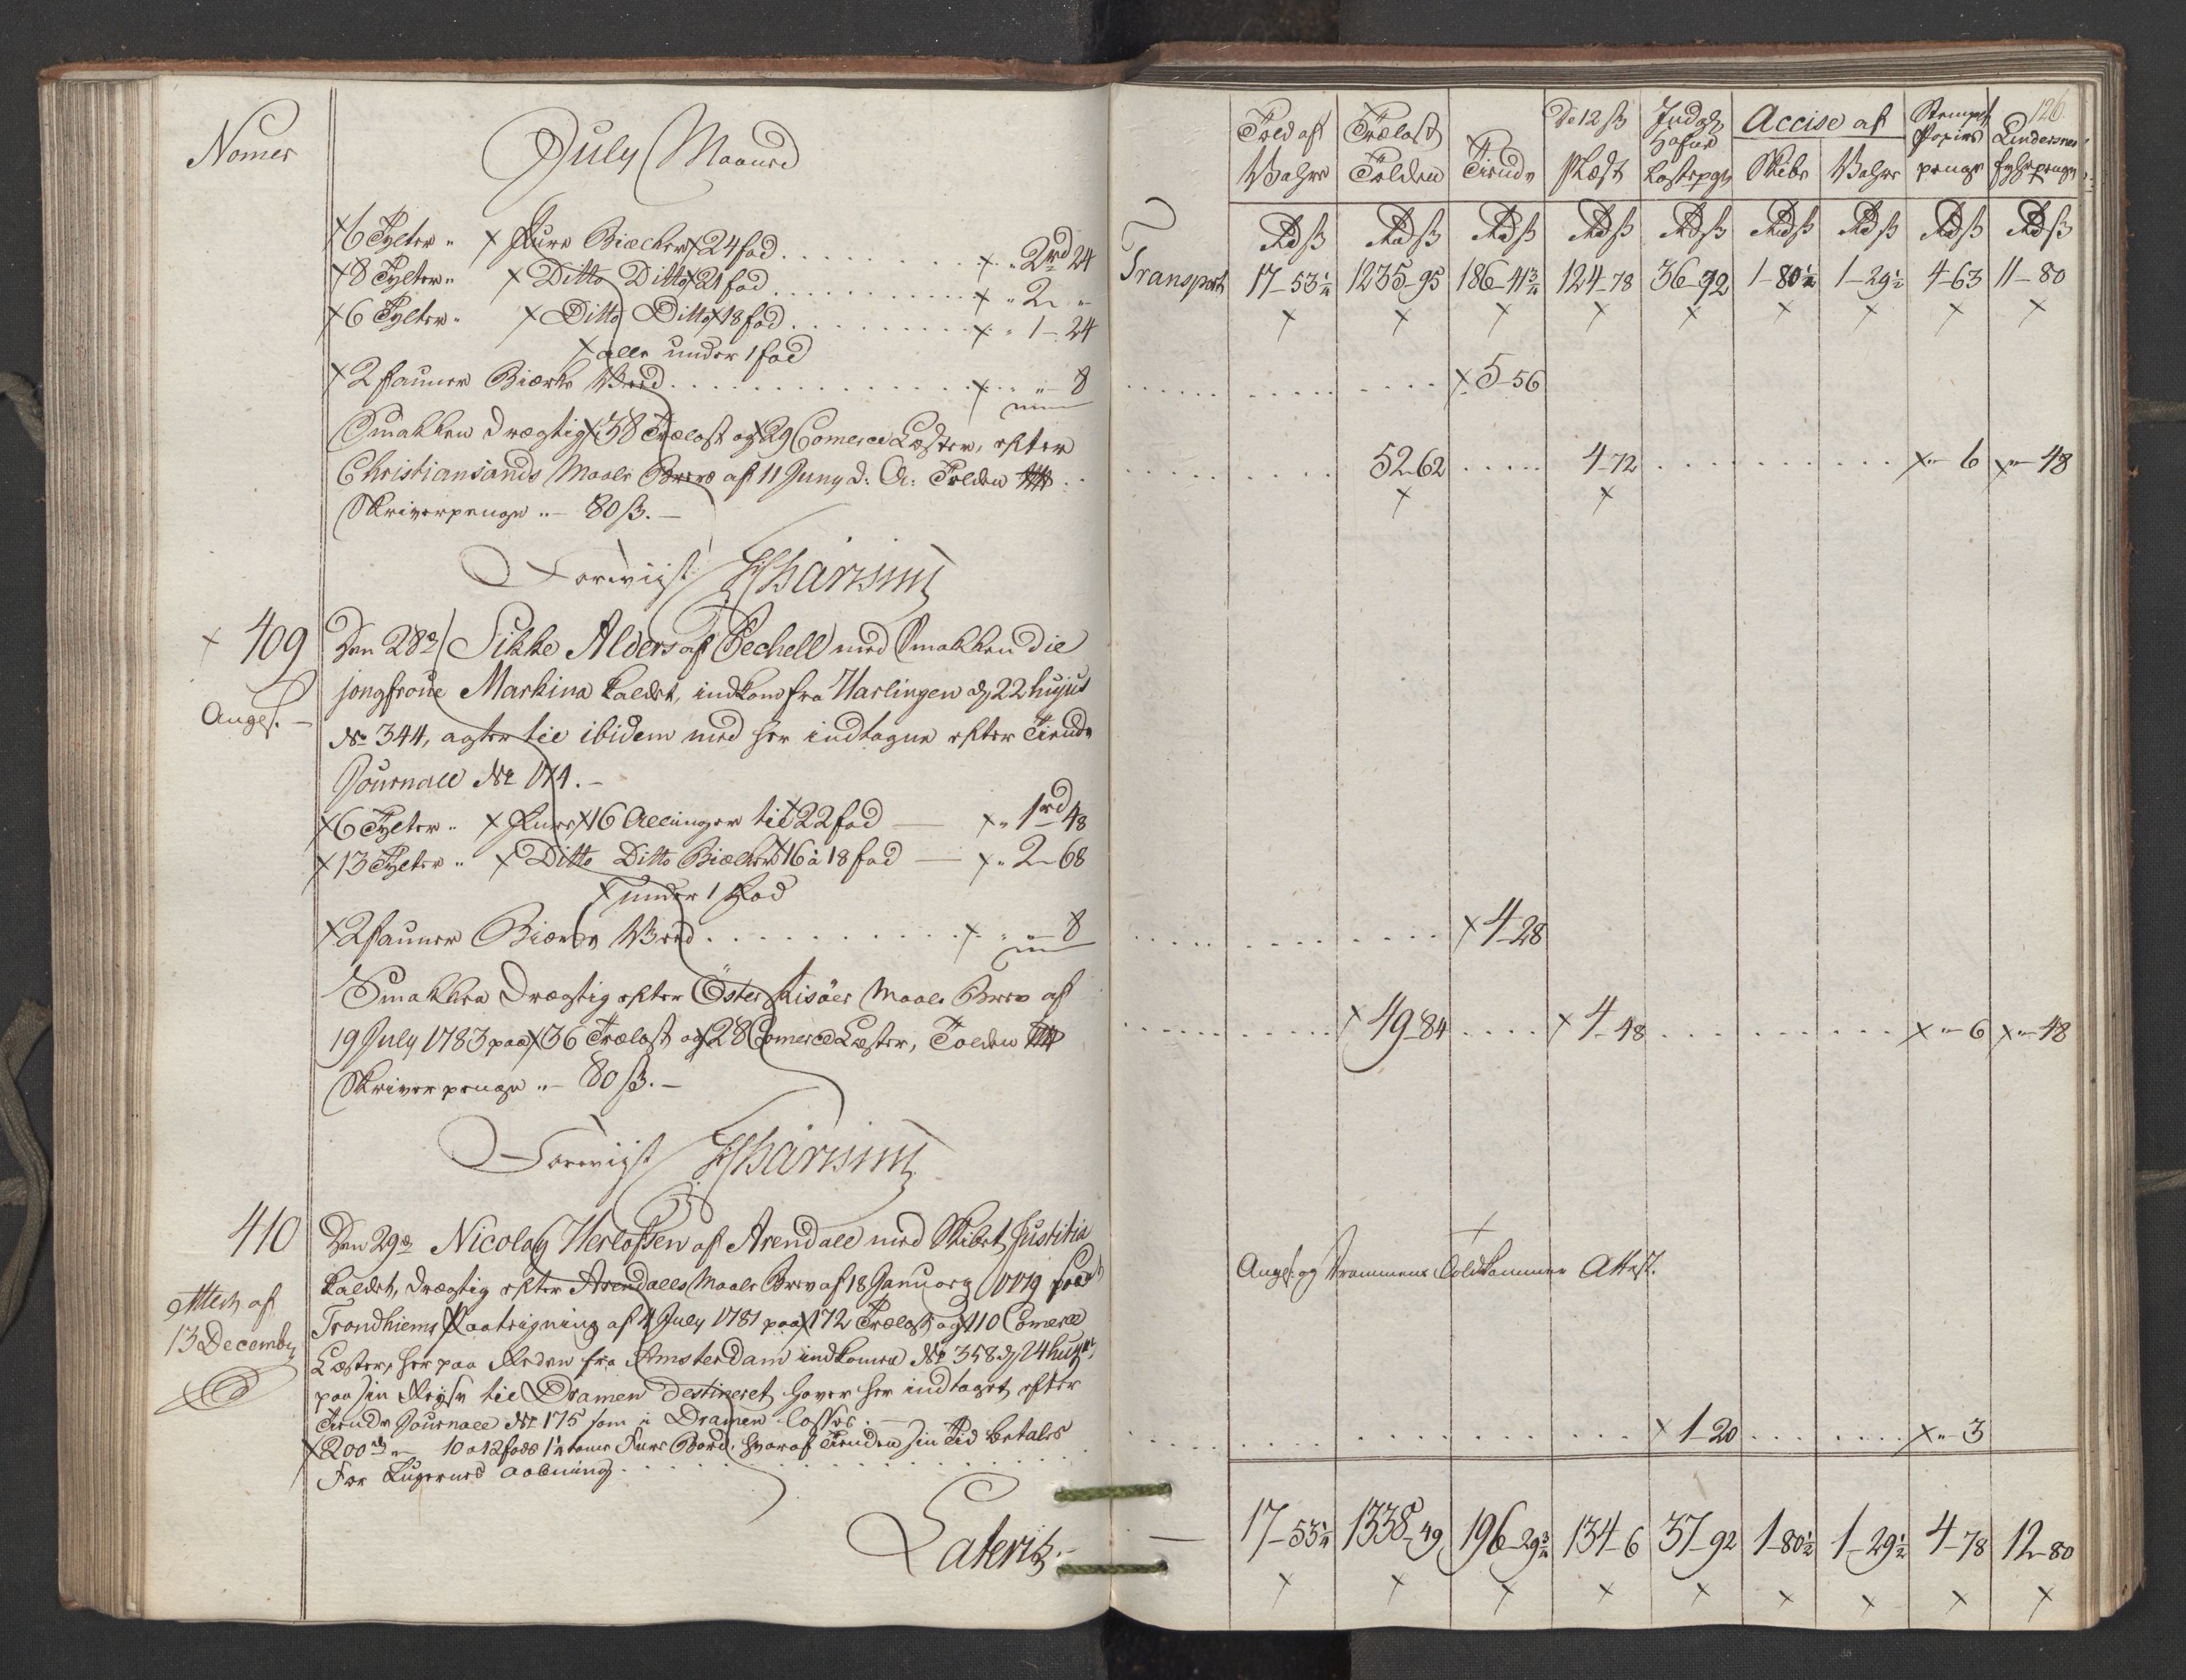 Nomer
July Maaned
6 Tylter " Furu Biælker 24 fod . . . " 2 rd 24
8 Tylter " Ditto Ditto 21 fod . . . " 2 - "
6 Tylter " Ditto Ditto 18 fod . . . " 1 - 24
alle under 1 fod
2 fauner Birke Wed . . . " - 8
Smakken drægtig 38 Trælast og 29 Comerce Læster, efter
Christiansands Maale Brev af 11 Juny d: A: Tolden
Skriverpenge " - 80 ß. -
Forviist
409
Angf. -
Den 28de Sikke Alders af Pechell med Smakken die
jongfroue Markina kaldet, indkom fra Harlingen d 22 hujus
No 344, agter til ibidem med her indtagne efter Tiende
Journall No 174. -
6 Tylter " Furu 16 Allinger til 22 fod — " 1 rd 48
13 Tylter " Ditto Ditto Biælker 16 à 18 fod — " 2 - 68
under 1 fod
2 fauner Birke Wed . . . " - 8
Smakken drægtig efter Öster Risöer Maale Brev af
19 July 1783 paa 36 Trælast og 28 Comerce Læster, Tolden
Skriverpenge " - 80 ß. -
Forviist
410
Attest af
13 Decembr
Den 29de Nicolay Herlofsen af Arendall med Skibet Justitia
kaldet, drægtig efter Arendalls Maale Brev af 18 January 1779 samt
Trondhiems Paategning af 4 July 1781 paa 172 Trælast og 110 Comerce
Læster, her paa Reden fra Amsterdam indkomen No 358 d 24 hujus,
paa sin Reyse til Dramen destineret haver her indtaget efter
Tiende Journall No 175 som i Dramen losses. -
200 " 10 a 12 fods 1½ toms Furu Bord, hvoraf Tienden sin Tid betales
For Lugernes aabning . . .
Lateris. —
126.
Told af Wahre
Trælast Tolden
Tiende
De 12 ß Læst
Indg Hafne Lastepge
Accise af
Skibe
Wahre
Stemplet Papirs penge
Lindersnes fyhrpenge
Rd ß Rd ß Rd ß Rd ß Rd ß Rd ß Rd ß Rd ß Rd ß
Transport 17 - 53¼ 1235 - 95 186 - 41¾ 124 - 78 36 - 72 1 - 80½ 1 - 29½ 4 - 63 11 - 80
5 - 56
52 - 62 4 - 72 " - 6 " - 48
4 - 28
49 - 84 4 - 48 " - 6 " - 48
Angf. og Drammens Toldkammer Attest.
1 - 20 " - 3
17 - 53¼ 1338 - 49 196 - 29¾ 134 - 6 37 - 92 1 - 80½ 1 - 29½ 4 - 78 12 - 80